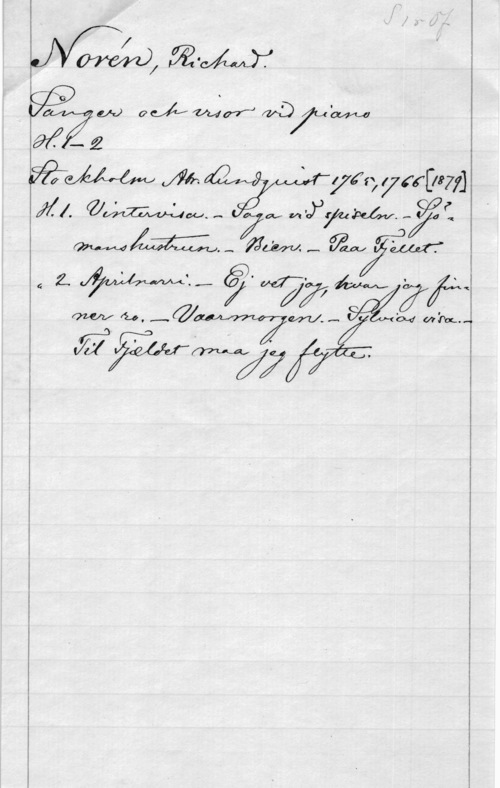 S 1 r-öf
Norén, Richard.
Sånger och visor vid piano
H. 1–2
Stockholm Abr. Lundquist 1765, 1766 [1879]
H. 1. Vintervisa. – Saga vid spiseln. – Sjö-
manshustrun. – Bien. – Paa Fjellet.
„ 2. Aprilnarri. – Ej vet jag, hvar jag fin-
ner ro. – Vaarmorgen. – Sylvias visa. –
Til Fjældet maa jeg flytte.